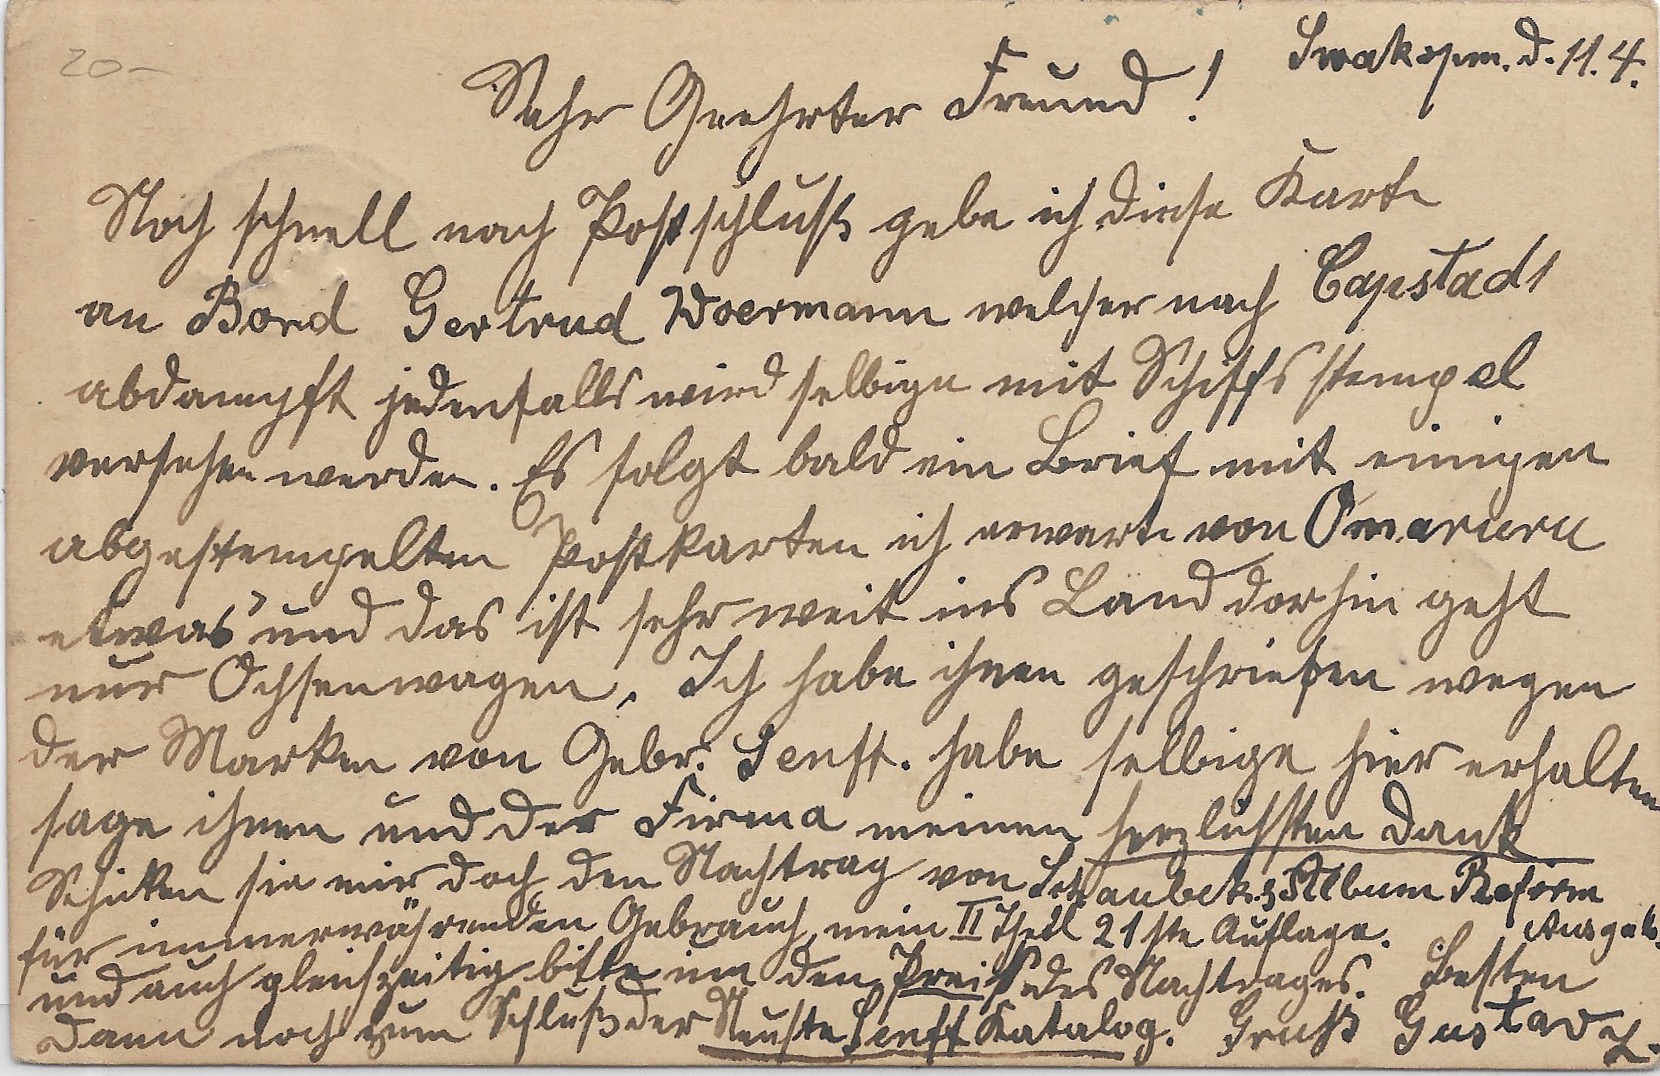 20-
Swakopm. d. 11. 4.
Sehr Geehrter Freund!
Noch schnell nach Postschluß gebe ich diese Karte
an Bord Gertrud Woermann welcher nach Capstadt
abdampft jedenfalls wird selbige mit Schiffsstempel
versehen werden. Es folgt bald ein Brief mit einigen
abgestempelten Postkarten ich erwarte von Omaruru
etwas und das ist sehr weit ins Land dorhin geht
nur Ochsenwagen. Ich habe ihnen geschrieben wegen
der Marken von Gebr. Senff. habe selbige hier erhalten
sage ihnen und der Firma meinen herzlichsten Dank
Schicken sie mir doch den Nachtrag von Schaubeks Album Reform
Ausgabe.
für immerwährenden Gebrauch, mein II Theil 21ste Auflage.
und auch gleichzeitig bitte um den Preiß des Nachtrages. Besten
Dann noch zum Schluß der Neuste Senff Katalog. Gruß Gustav